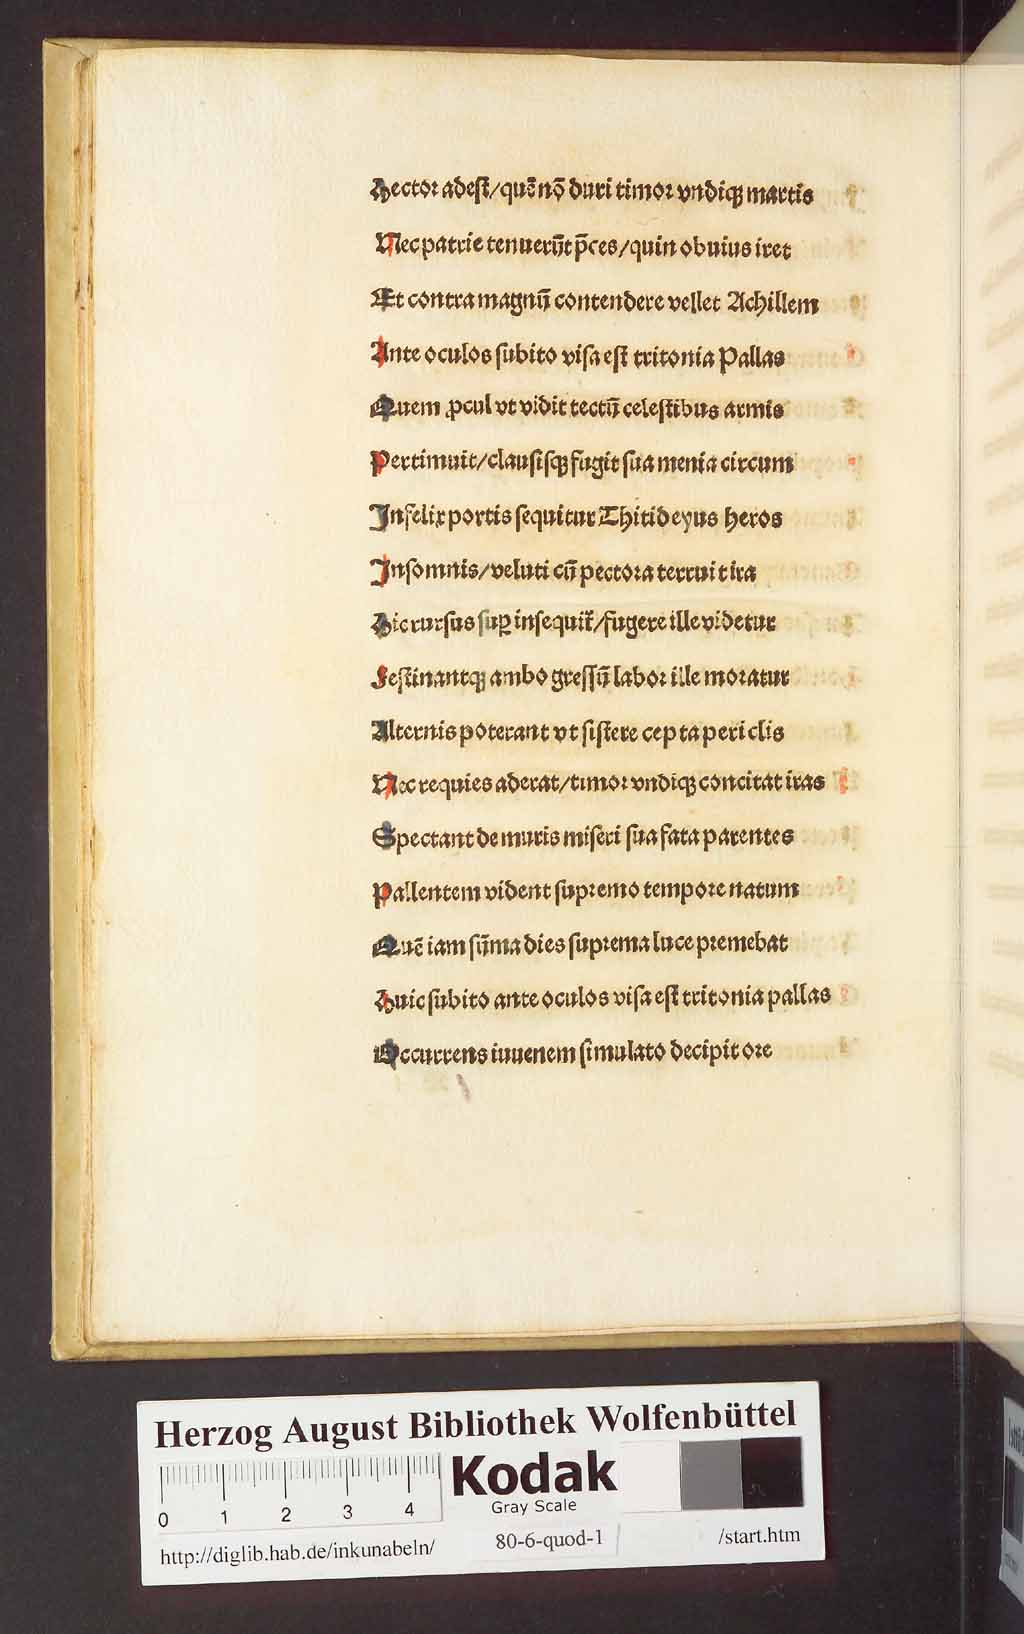 Hector adeſt/quē nō duri timoꝛ vndiqꝫ martis
Nec patrie tenuerūt p̄ces/quin obuius iret
Et contra magnū contendere vellet Achillem
Ante oculos ſubito viſa eſt tritonia Pallas
Quem ꝓcul vt vidit tectū celeſtibus armis
Pertimuit/clauſiſqꝫ fugit ſua menia circum
Infelix portis ſequitur Thitideyus heros
Inſomnis/veluti cū pectoꝛa terruit ira
Hic rurſus ſuꝑ inſequit᷑/fugere ille videtur
Feſtinantqꝫ ambo greſſū laboꝛ ille moꝛatur
Alternis poterant vt ſiſtere cepta periclis
Nec requies aderat/timoꝛ vndiqꝫ concitat iras
Spectant de muris miſeri ſua fata parentes
Pallentem vident ſupꝛemo tempoꝛe natum
Quē iam ſūma dies ſupꝛema luce pꝛemebat
Huic ſubito ante oculos viſa eſt tritonia pallas
Occurrens iuuenem ſimulato decipit oꝛe
Herzog August Bibliothek Wolfenbüttel
Kodak
Gray Scale
0 1 2 3 4
http://diglib.hab.de/inkunabeln/ 80-6-quod-1 /start.htm